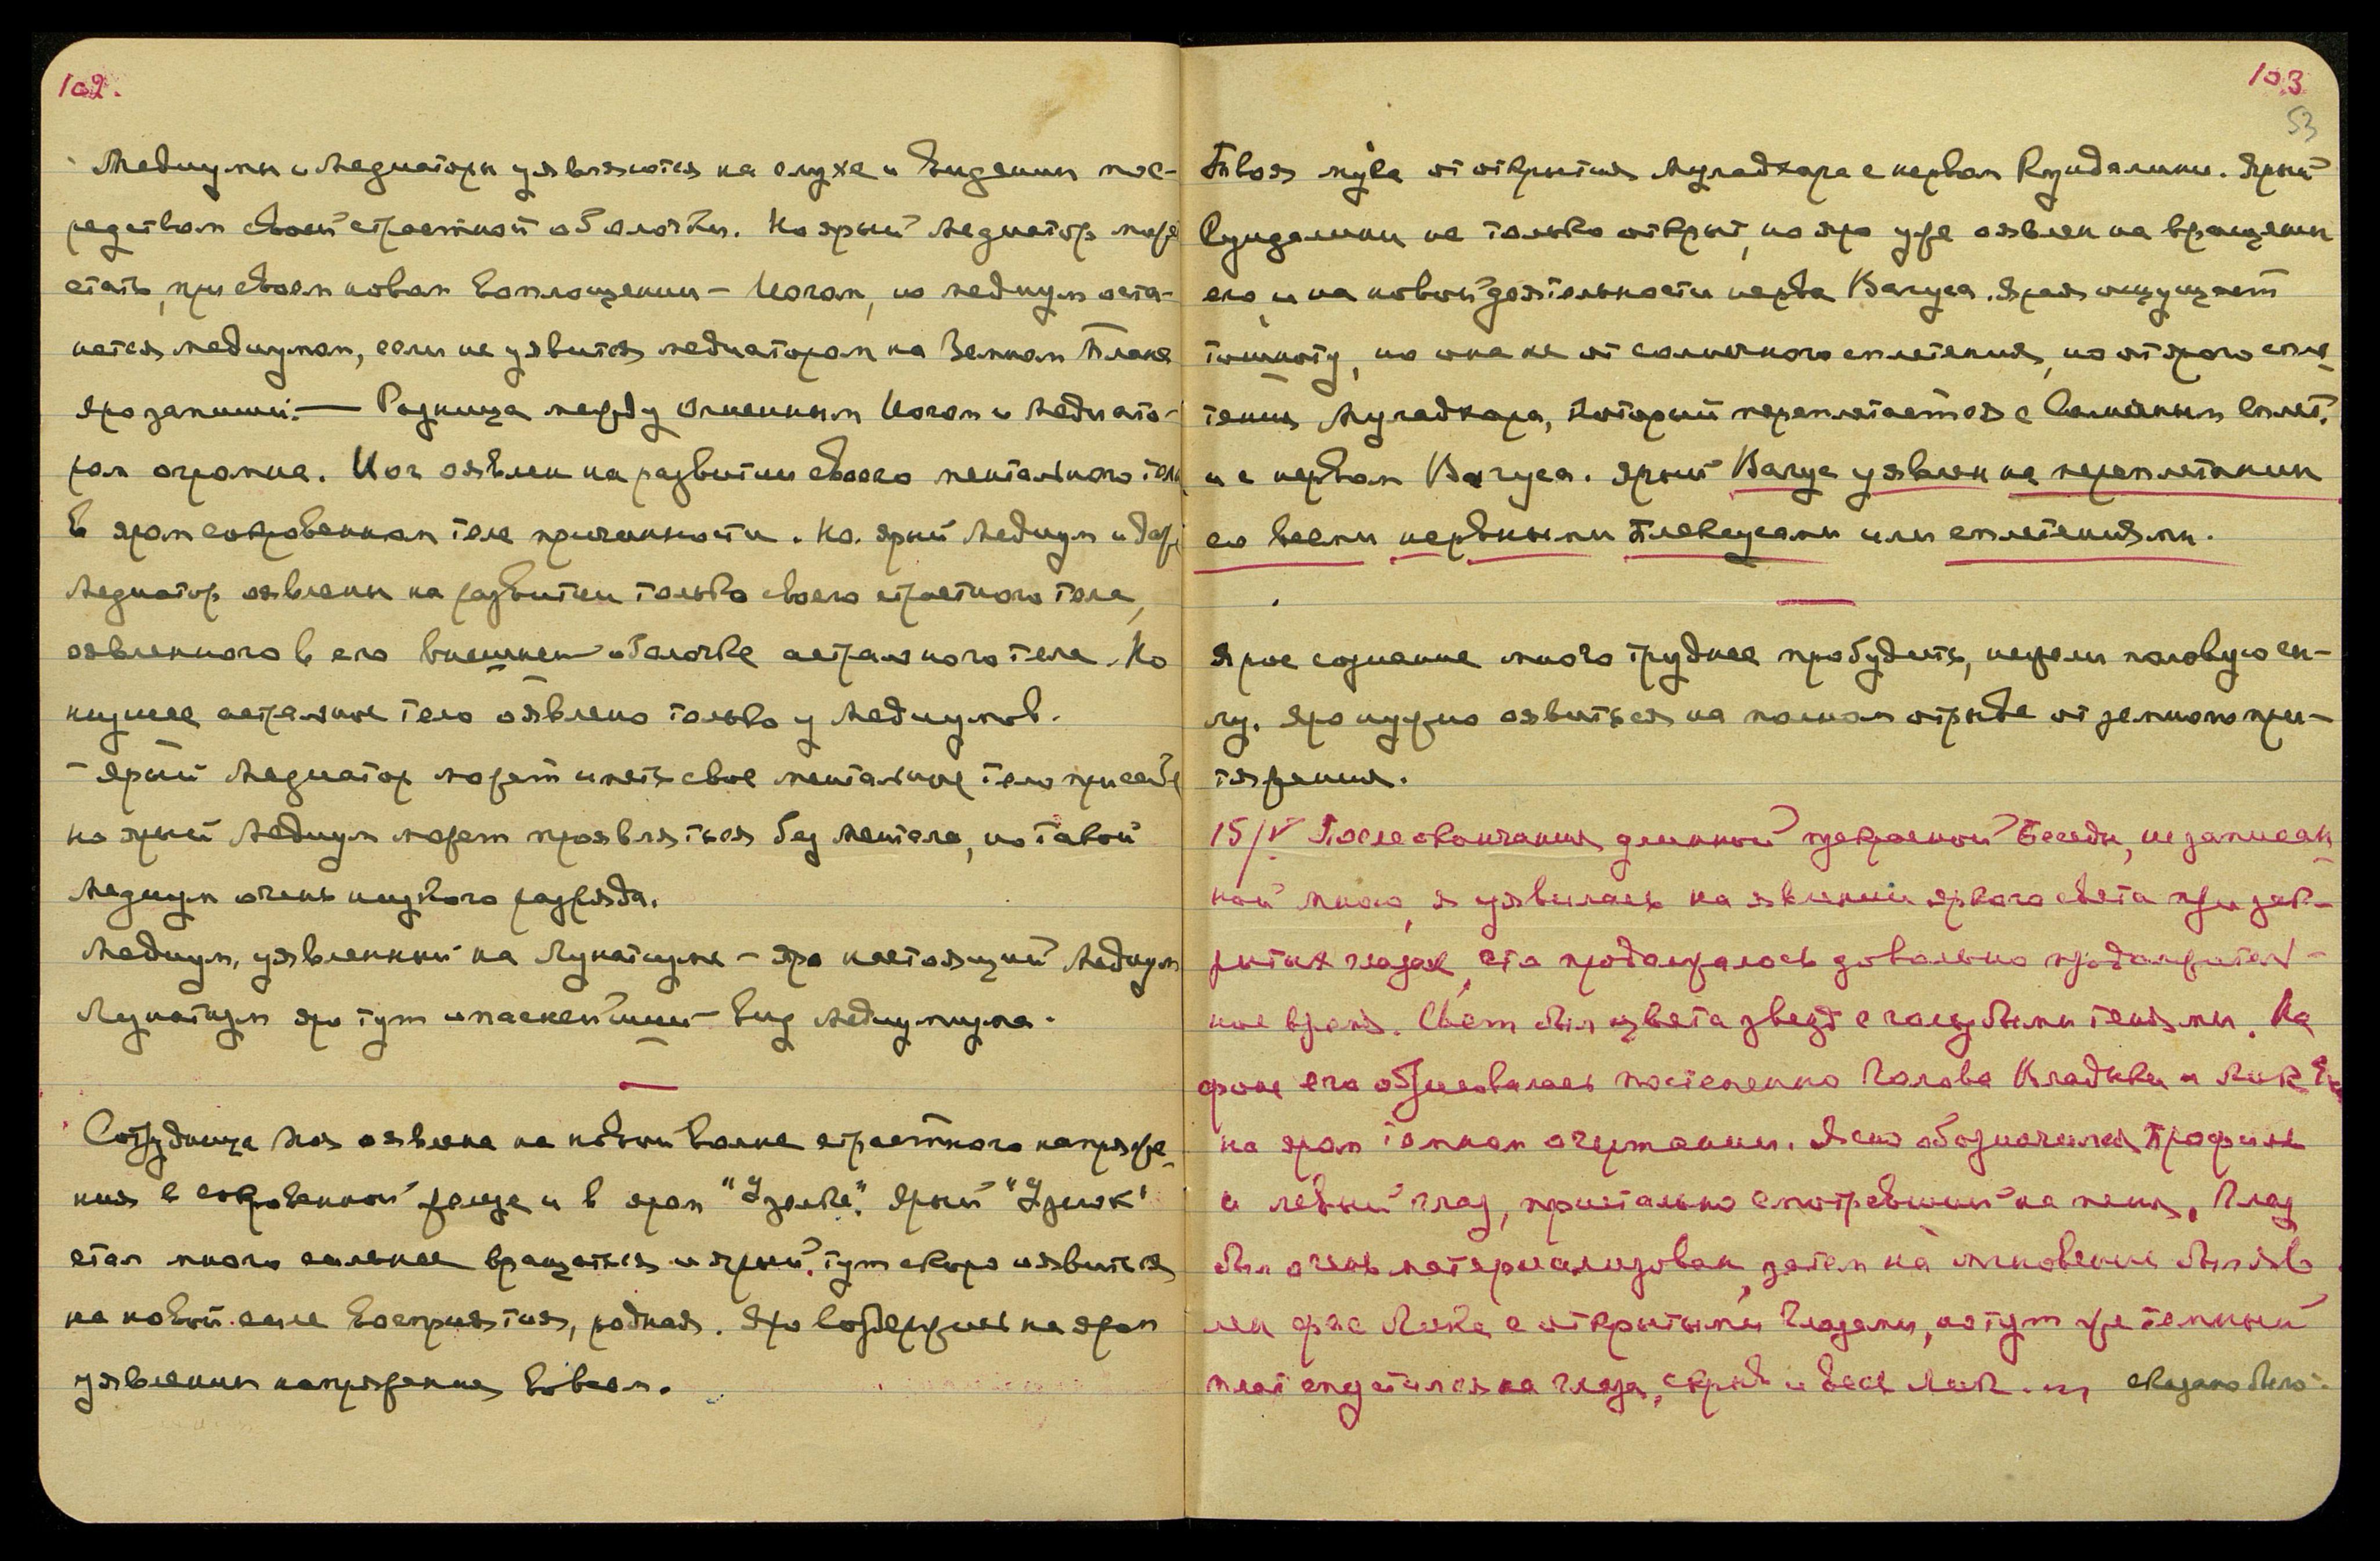 102.
Медиумы и Медиаторы уявляются на слухе и видении пос-
редством своей страстной оболочки. Но ярый Медиатор може
стать, при своем новом воплощении – Иогом, но медиум оста-
нется медиумом, если не уявится медиатором на Земном Плане
Яро запиши: — Разница между Огненным Иогом и Медиато-
ром огромна. Иог оявлен на развитии своего ментального тела
в яром сокровенном теле причинности. Но ярый Медиум и даже
Медиатор оявлены на развитии только своего страстного тела,
оявленного в его внешней оболочке астрального тела. Но
низшее астральное тело оявлено только у Медиумов.
– Ярый Медиатор может иметь свое ментальное тело при себе
но ярый Медиум может проявляться без Ментала, но такой
Медиум очень низкого разряда.
Медиум, уявленный на Лунатизме – яро настоящий Медиум
Лунатизм яро тут опаснейший вид Медиумизма.
Сотрудница Моя оявлена на новой волне страстного напряже-
ния в сокровенной железе и в яром "Узелке". Ярый "Узелок"
стал много сильнее вращаться и ярый тут скоро уявится
на новой силе восприятия, родная. Яро воздержись на яром
уявлении напряжения во всем.
103
53
Твоя мука от открытия Муладхара с нервом Кундалини. Ярый
Кундалини не только открыт, но яро уже оявлен на вращении
его, и на новой деятельности нерва Вагуса. Ярая ощущает
тошноту, но она не от солнечного сплетения, но от ярого спле-
тения Муладхара, который переплетается с Солнечным Сплет.
и с нервом Вагуса. Ярый Вагус уявлен на переплетении
со всеми нервными Плексусами или сплетениями.
Ярое сознание много труднее пробудить, нежели половую си-
лу. Яро нужно оявиться на полном отрыве от земного при-
тяжения.
15/V После окончания длинной прекрасной Беседы, не записан-
ной мною, я уявилась на явлении яркого света при зак-
рытых глазах, что продолжалось довольно продолжитель-
ное время. Свет был цвета звезд с голубыми тенями. На
фоне его обрисовалась постепенно Голова Владыки и Лик Ег
на яром тонком очертании. Ясно обозначился Профиль
и левый глаз, пристально смотревший на меня. Глаз
был очень материализован, затем на мгновение был яв-
лен фас Лика с открытыми Глазами, но тут же темный
плат спустился на глаза, скрыв и весь Лик. сказано было: